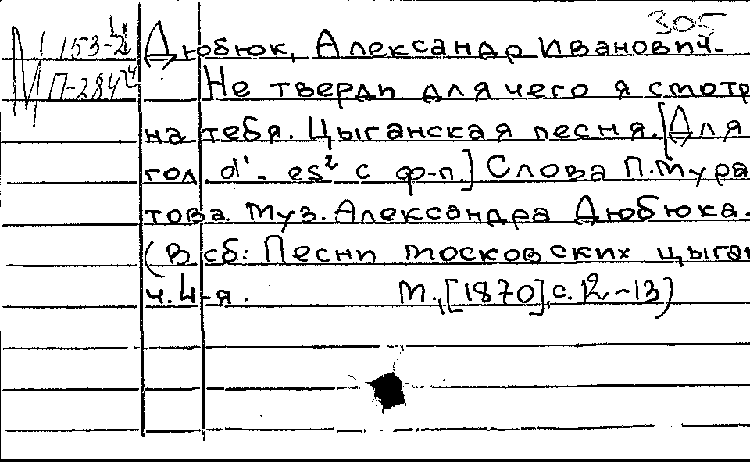 305
М 153-2
П-284
Дюбюк, Александр Иванович.
Не тверди для чего я смотр
на тебя. Цыганская песня. [Для
гол. d¹- es² с ф-п.] Слова П. Мура
това. Муз. Александра Дюбюка.
(В сб: Песни московских цыган
ч. 4-я. М., [1870], с. 12-13)